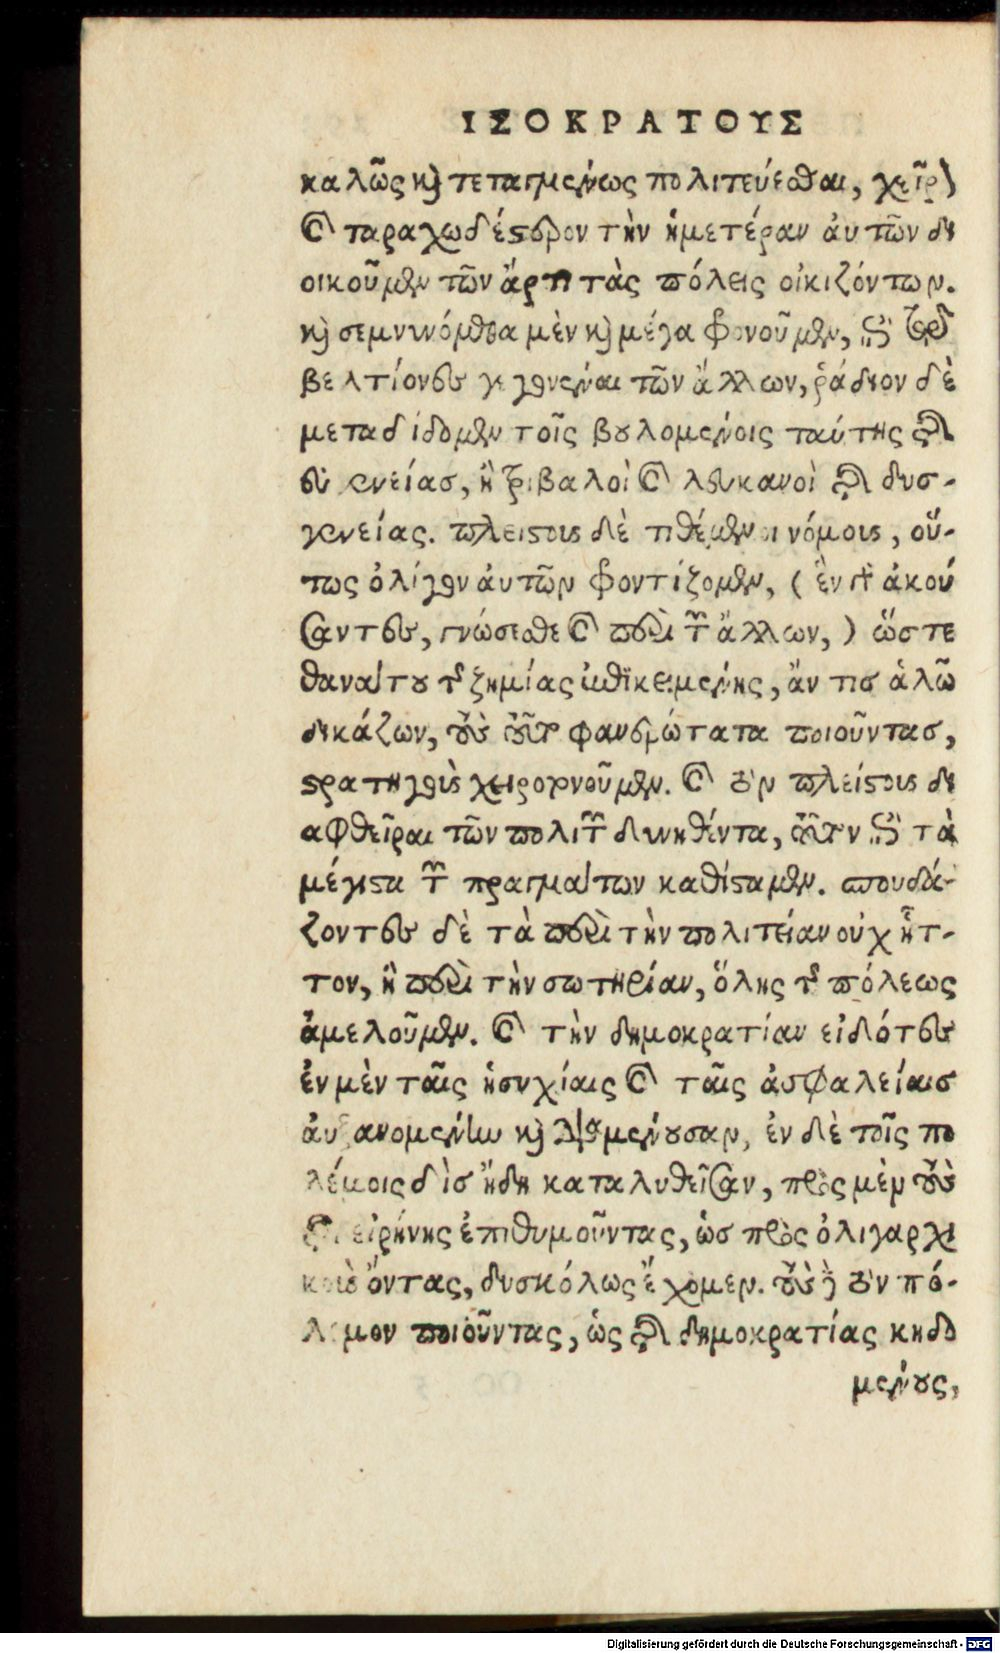 ΙΣΟΚΡΑΤΟΥΣ
καλῶς καὶ τεταγμένως πολιτεύεσθαι, χεῖρον
καὶ ταραχωδέστερον τὴν ἡμετέραν αὐτῶν δι
οικοῦμεν τῶν ἄρτι τὰς πόλεις οἰκιζόντων.
καὶ σεμνυνόμεθα μὲν καὶ μέγα φρονοῦμεν, ἐπὶ τῷ
βελτίους γεγονέναι τῶν ἄλλων, ῥάδιον δὲ
μεταδίδομεν τοῖς βουλομένοις ταύτης τῆς
εὐγενείας, ἢ τριβαλοὶ καὶ λευκανοὶ τῆς δυσ-
γενείας. πλείστους δὲ τιθέμενοι νόμους, οὕ-
τως ὀλίγον αὐτῶν φροντίζομεν, (ἓν γὰρ ἀκού
σαντες, γνώσεσθε καὶ περὶ τῶν ἄλλων,) ὥστε
θανάτου τῆς ζημίας ἐπικειμένης, ἄν τις ἁλῷ
δεκάζων, τοὺς τοῦτο φανερώτατα ποιοῦντας,
στρατηγοὺς χειροτονοῦμεν. καὶ τὸν πλείστους δι
αφθεῖραι τῶν πολιτῶν δυνηθέντα, τοῦτον ἐπὶ τὰ
μέγιστα τῶν πραγμάτων καθίσταμεν. σπουδά-
ζοντες δὲ τὰ περὶ τὴν πολιτείαν οὐχ ἧτ-
τον, ἢ περὶ τὴν σωτηρίαν, ὅλης τῆς πόλεως
ἀμελοῦμεν. καὶ τὴν δημοκρατίαν εἰδότες
ἐν μὲν ταῖς ἡσυχίαις καὶ ταῖς ἀσφαλείαις
αὐξανομένην καὶ διαμένουσαν, ἐν δὲ τοῖς πο
λέμοις δὶς ἤδη καταλυθεῖσαν, πρὸς μὲν τοὺς
τῆς εἰρήνης ἐπιθυμοῦντας, ὡς πρὸς ὀλιγαρχι
κοὺς ὄντας, δυσκόλως ἔχομεν. τοὺς δὲ τὸν πό-
λεμον ποιοῦντας, ὡς τῆς δημοκρατίας κηδο
μένους,
Digitalisierung gefördert durch die Deutsche Forschungsgemeinschaft - DFG